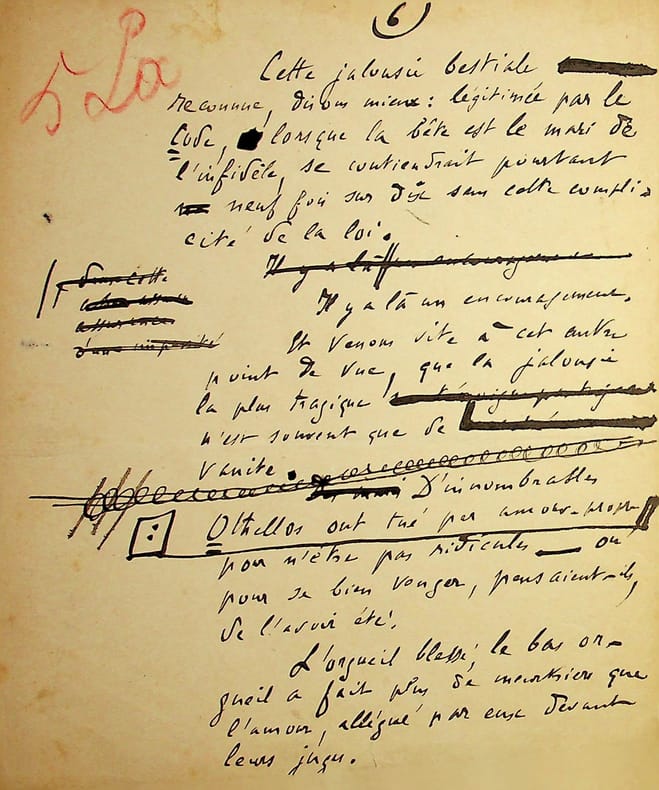 6
5 La
Cette jalousie bestiale
reconnue, disons mieux : légitimée par le
Code, lorsque la bête est le mari de
l'infidèle, se contiendrait pourtant
neuf fois sur dix sans cette compli-
cité de la loi.
Il y a là un encouragement.
Et venons vite à cet autre
point de vue, que la jalousie
la plus tragique
n'est souvent que de
vanité.
D'innombrables
Othellos ont tué par amour-propre
pour n'être pas ridicules — ou
pour se bien venger, pensaient-ils,
de l'avoir été.
L'orgueil blessé, le bas or-
gueil a fait plus de meurtriers que
l'amour, allégué par eux devant
leurs juges.